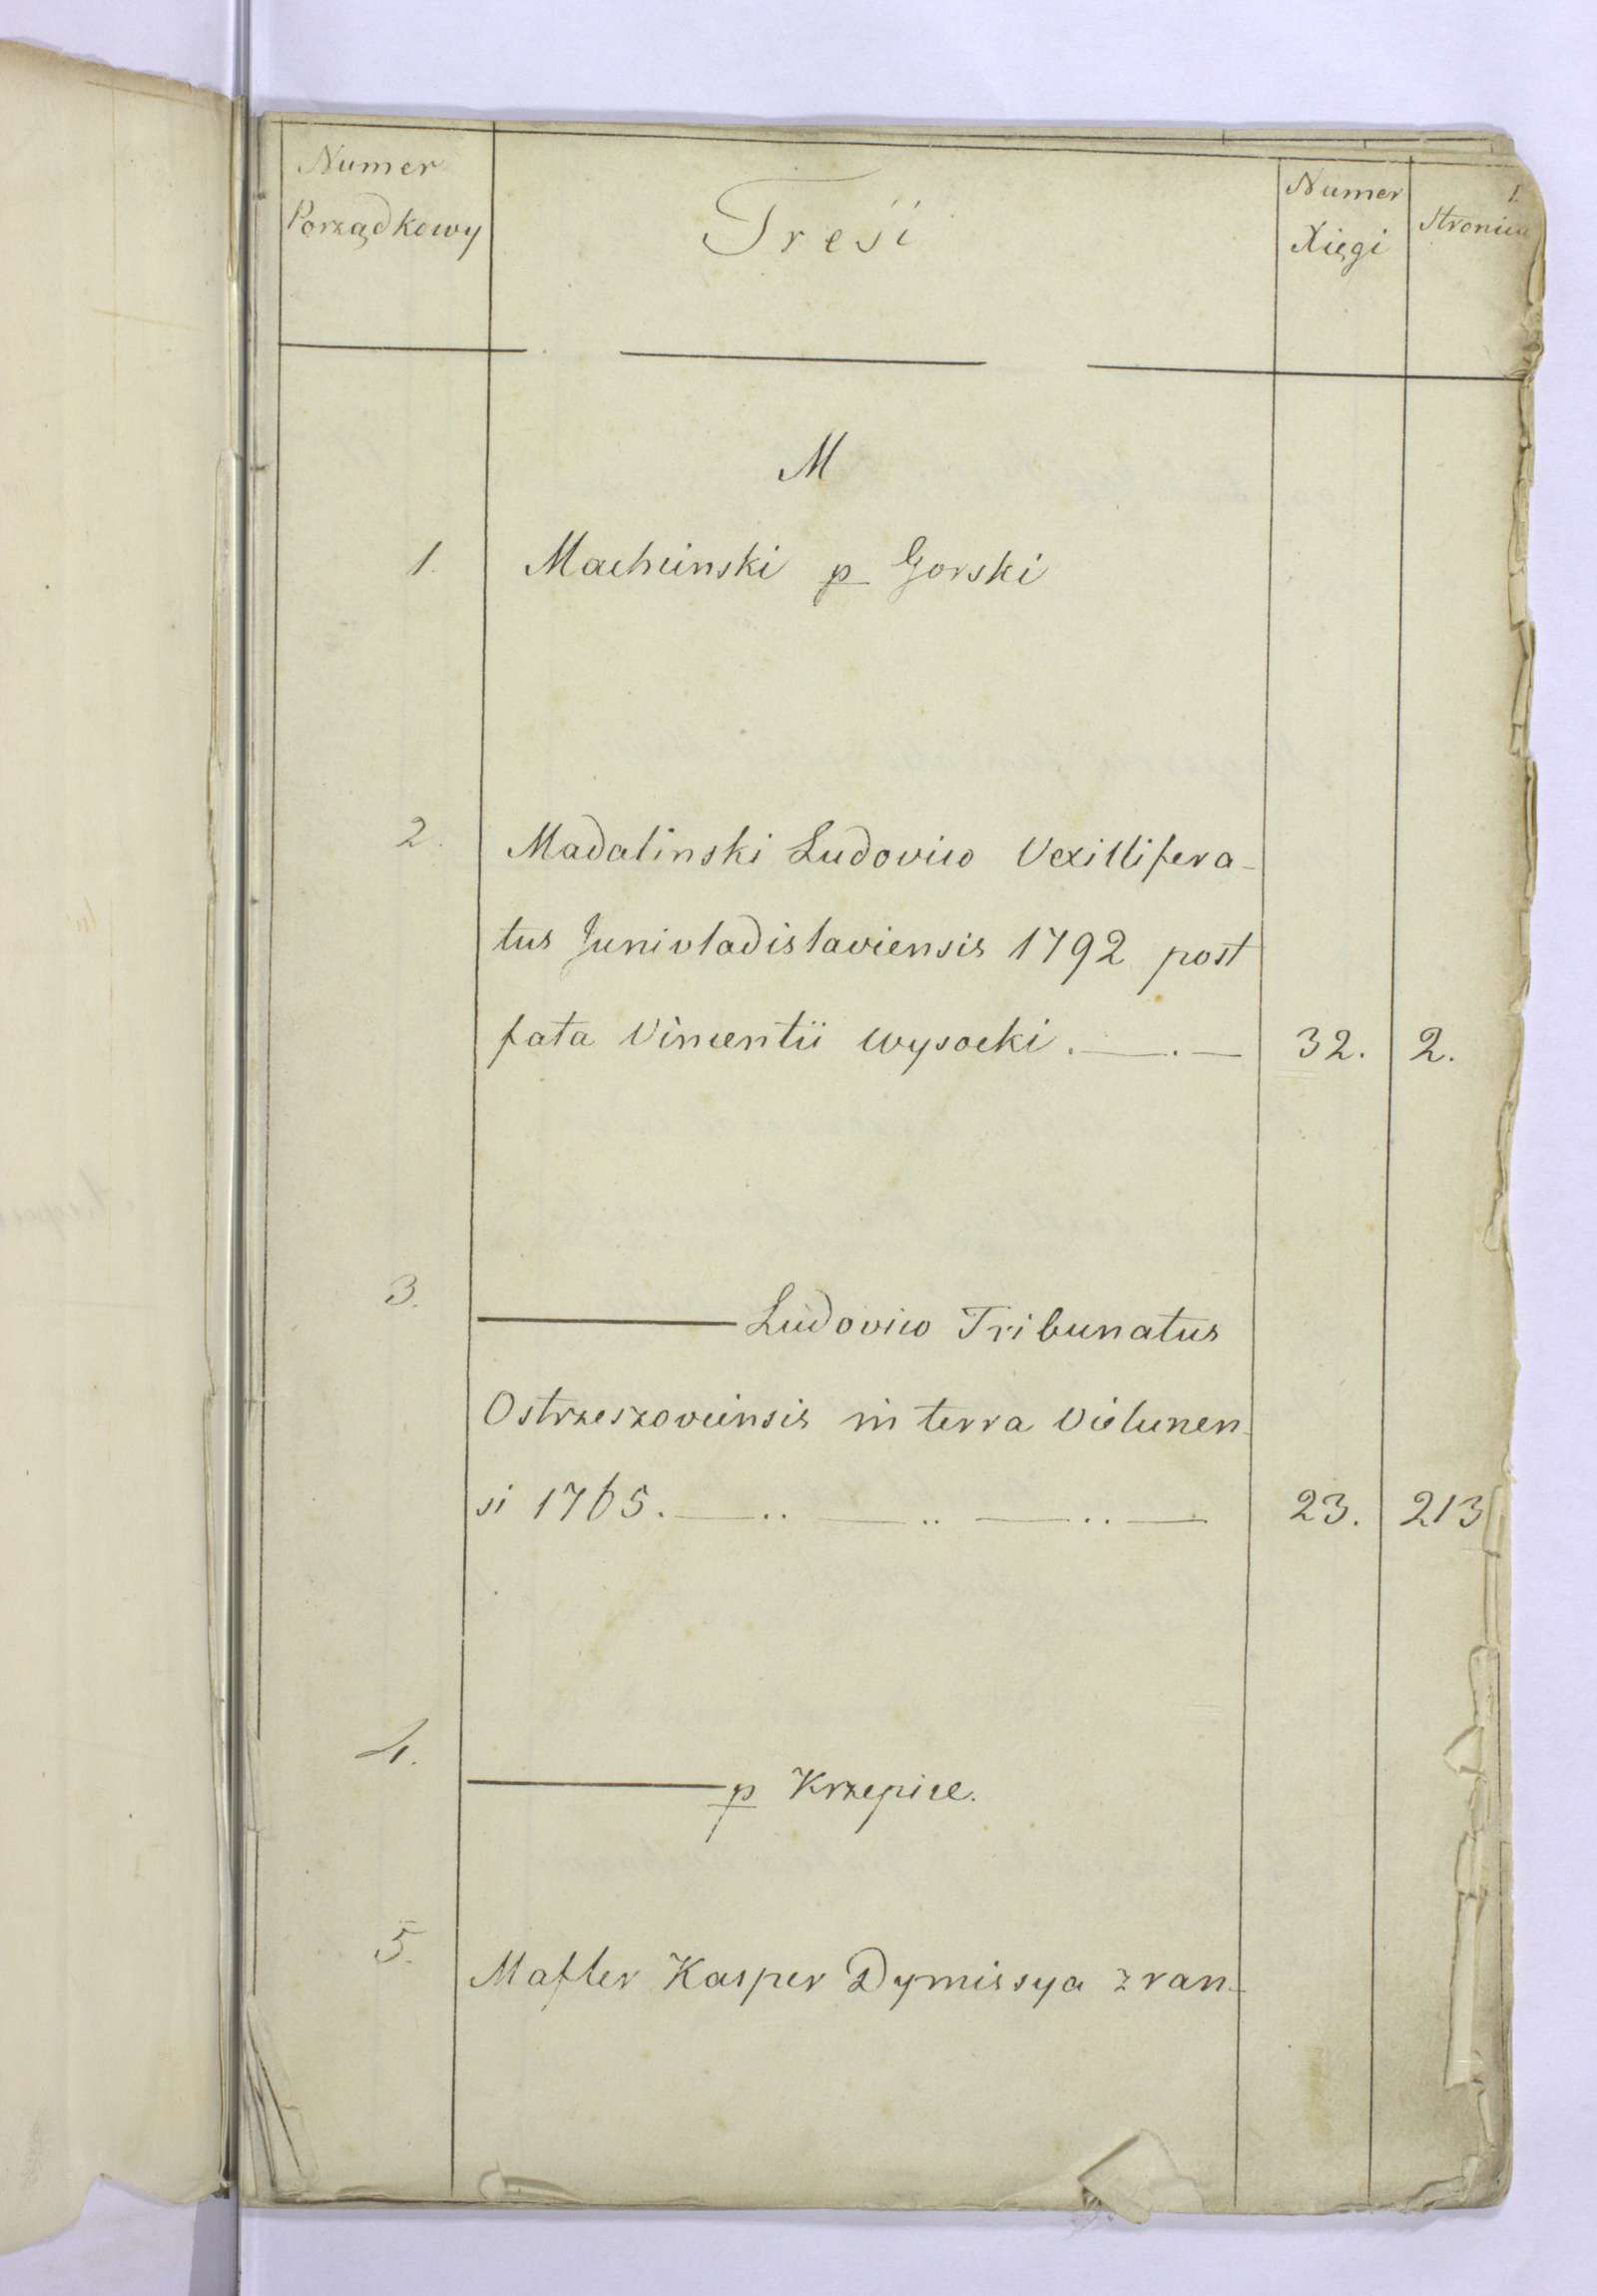 Numer
Porządkowy
Treść
Numer
Xięgi
1.
Stronica
M
1. Machcinski p Gorski
2. Madalinski Ludovico Vexillifera-
tus Junivladislaviensis 1792 post
fata Vincentii Wysocki. — . — 32. 2.
3. ——— Ludovico Tribunatus
Ostrzeszoviensis in terra Vielunen-
si 1765. — .. — .. — .. — 23. 213
4. ——— p Krzepice.
5. Mafler Kasper Dymissya z ran-